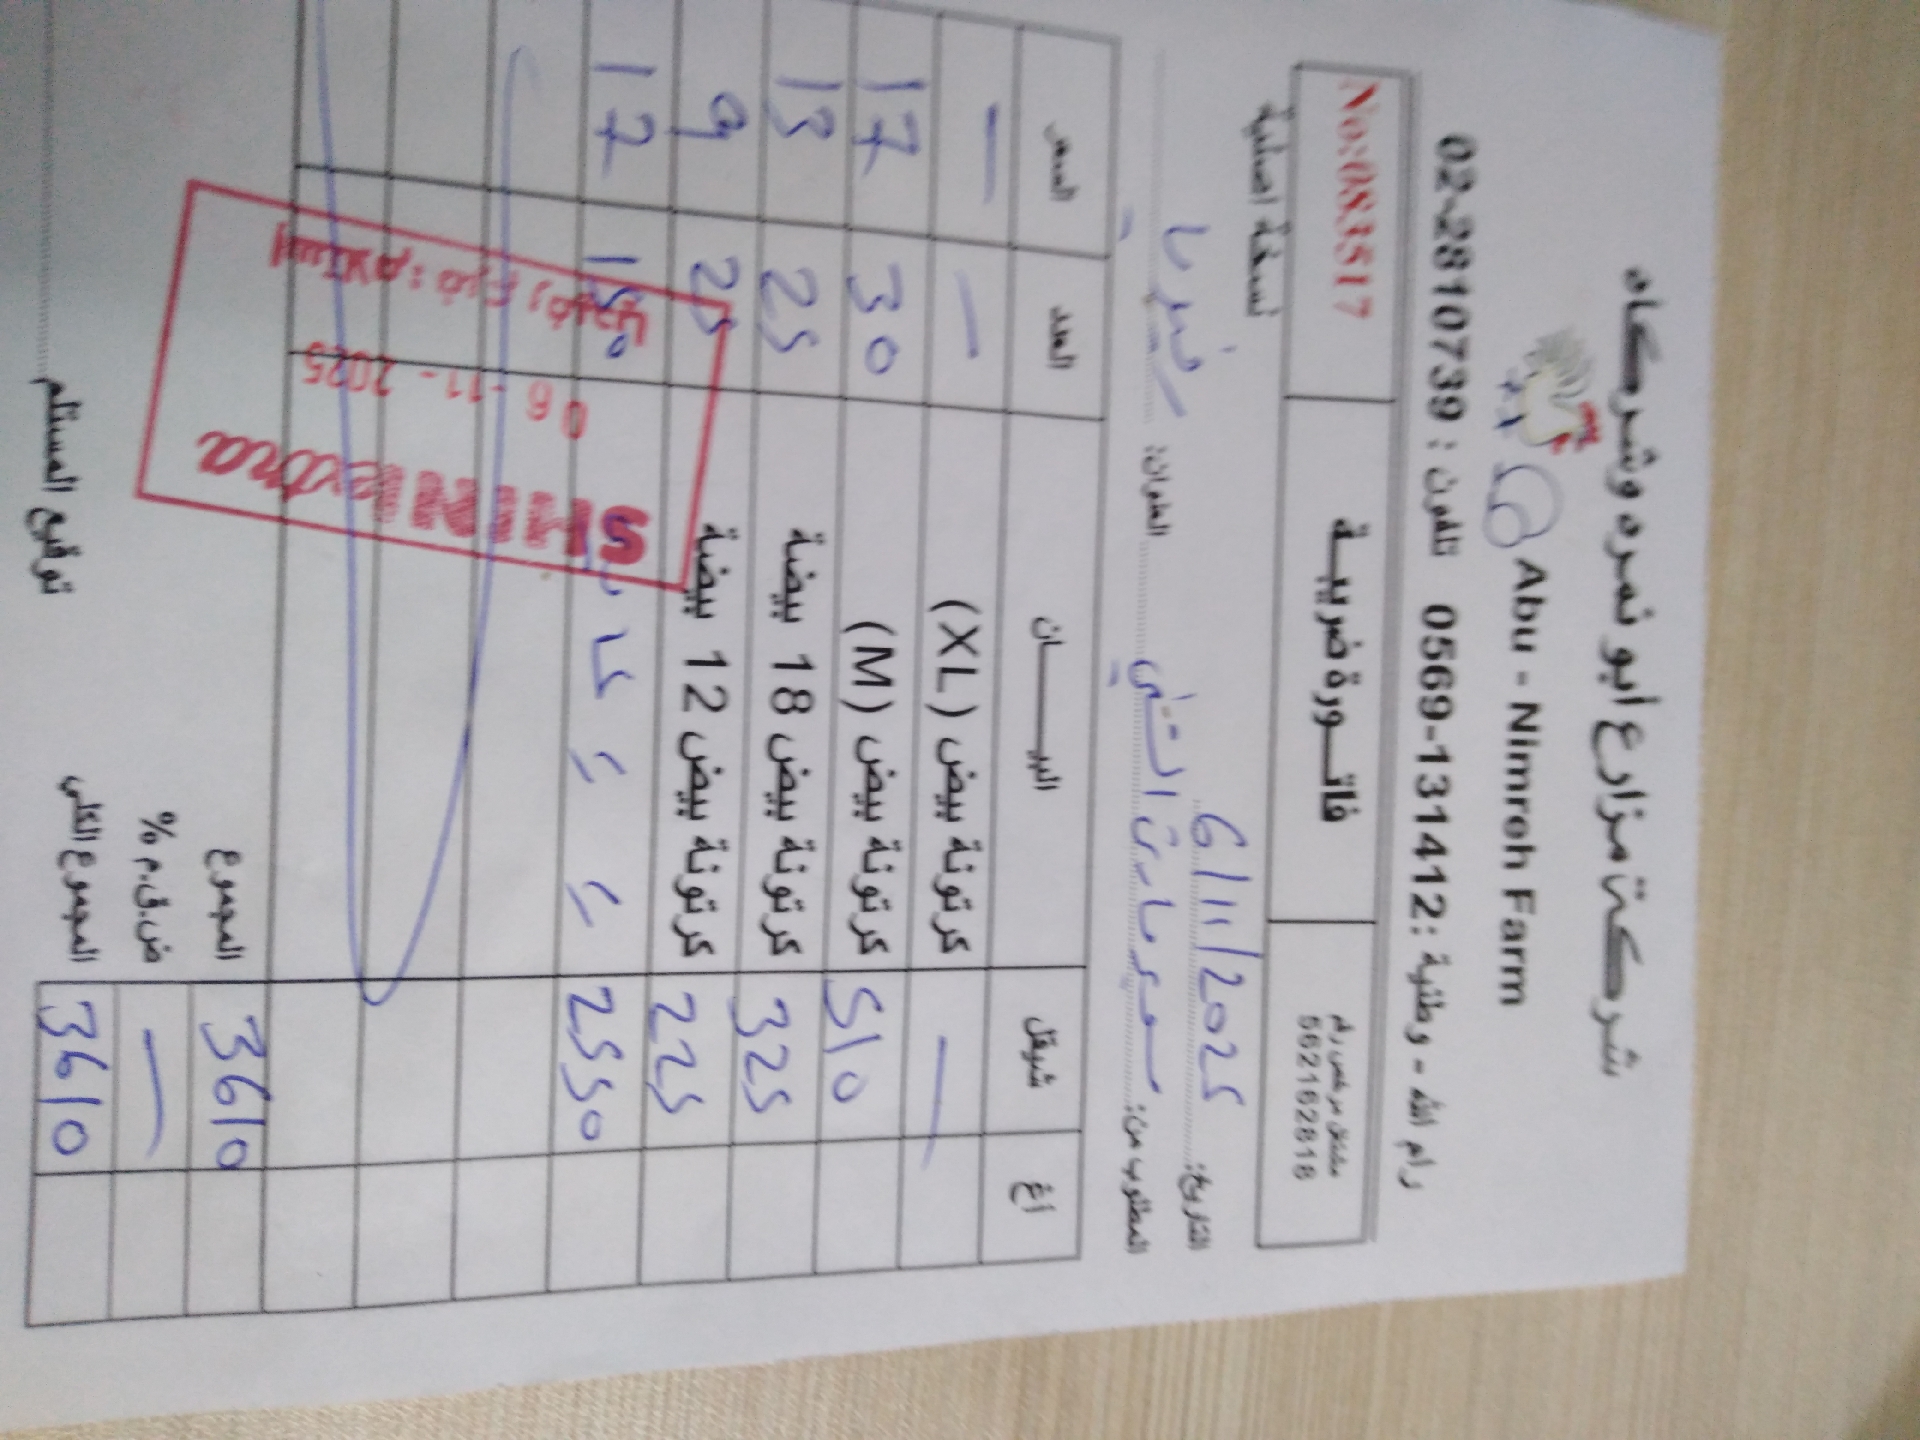 شركة مزارع أبو نمره وشركاه
Abu - Nimreh Farm
رام الله - وطنية : 0569-131412 تلفون : 02-2810739
مشتغل مرخص رقم
562162818
فاتـــورة ضريبـــة
No:083517
نسخة اصلية
التاريخ: 6/11/2025
المطلوب من: سوبر ماركت الشني العنوان:
اغ شيقل البيـــــان العدد السعر
— كرتونة بيض (XL) — —
510 كرتونة بيض (M) 30 17
325 كرتونة بيض 18 بيضة 25 13
225 كرتونة بيض 12 بيضة 25 9
2550 150 17
SHINI extra
06 -11- 2025
استلام : فرع
3610 المجموع
— ض.ق.م %
3610 المجموع الكلي
توقيع المستلم